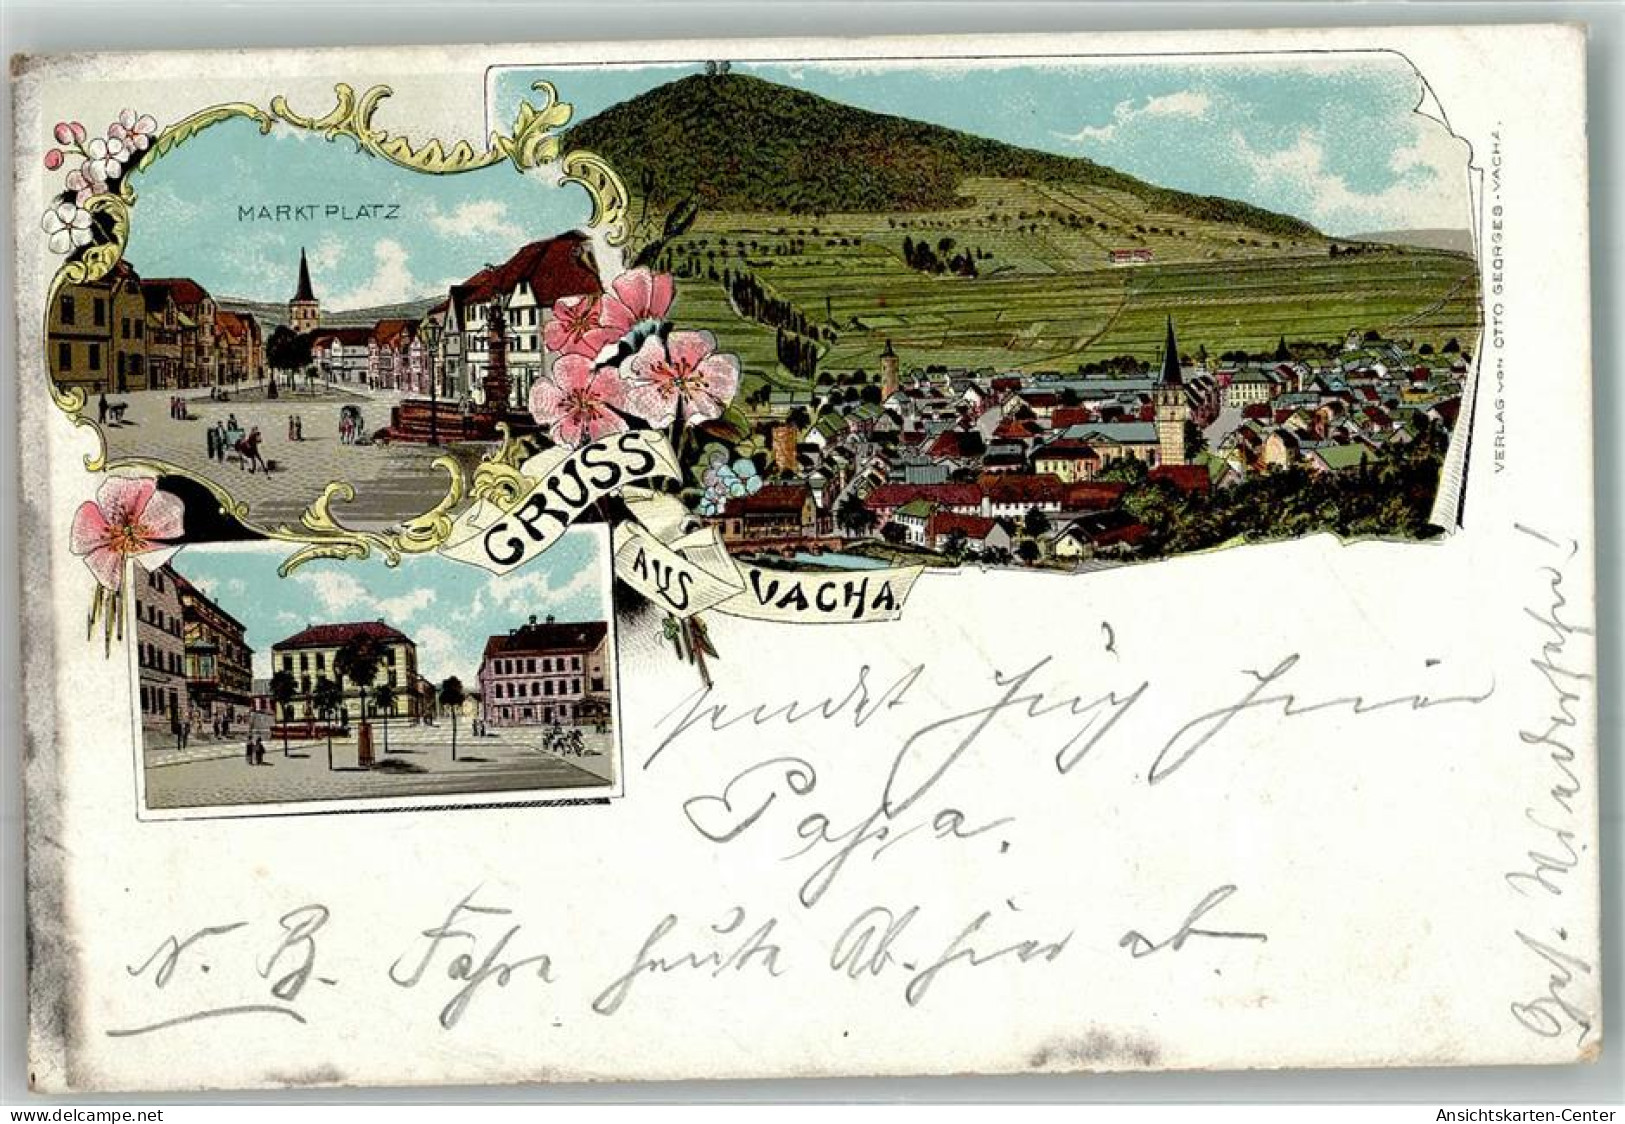 MARKTPLATZ
GRUSS
AUS
VACHA.
VERLAG von OTTO GEORGES-VACHA.
sendet hier
Papa.
N. B. Fahre heute Ab. hier ab.
Wiedersehn!
www.delcampe.net
Ansichtskarten-Center